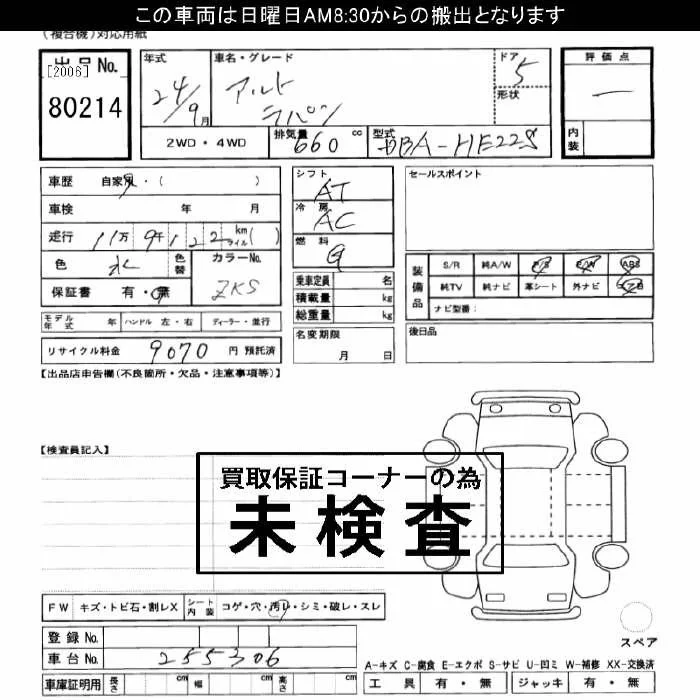 この車両は日曜日AM8:30からの搬出となります
(複合機)対応用紙
出品No.
[2006]
80214
年式 24/9月
車名・グレード アルト ラパン
ドア 5
形状
評価点
―
内装
2WD・4WD
排気量 660 cc
型式 DBA-HE22S
車歴 自家用・( )
車検 年 月
走行 11万9千122 km マイル( )
色 水 色替
カラーNo. ZKS
保証書 有・無
モデル年式 年 ハンドル 左・右 ディーラー・並行
リサイクル料金 9070 円 預託済
シフト AT
冷房 AC
燃料 G
乗車定員 名
積載量 kg
総重量 kg
名変期限 月 日
セールスポイント
装備品
S/R 純A/W P/S P/W ABS
純TV 純ナビ 革シート 外ナビ エアB
ナビ型番:
後日品
【出品店申告欄(不良箇所・欠品・注意事項等)】
【検査員記入】
買取保証コーナーの為
未検査
FW キズ・トビ石・割レX
シート内装 コゲ・穴・汚レ・シミ・破レ・スレ
登録No.
車台No. 255306
車庫証明用 長さ cm 幅 cm 高さ cm
スペア
A-キズ C-腐食 E-エクボ S-サビ U-凹ミ W-補修 XX-交換済
工具 有・無 ジャッキ 有・無